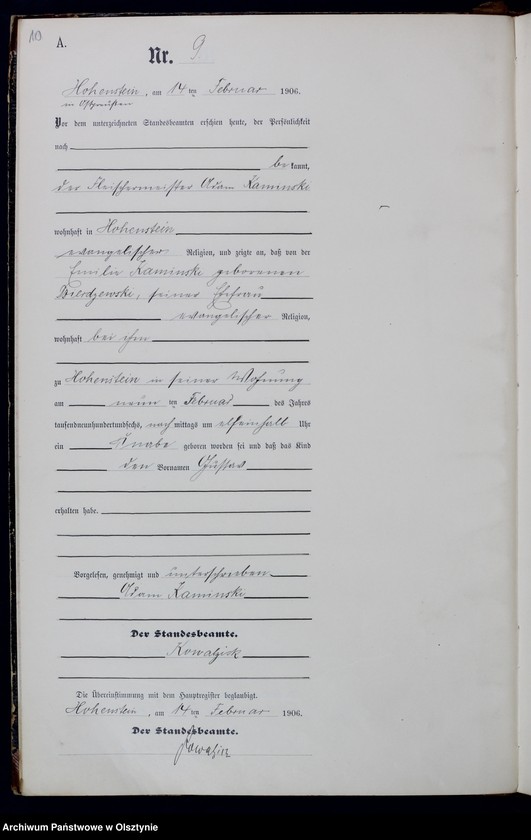 10
A.
Nr. 9.
Hohenstein, am 14ten Februar 1906.
in Ostpreußen
Vor dem unterzeichneten Standesbeamten erschien heute, der Persönlichkeit
nach
bekannt,
der Fleischermeister Adam Kaminske
wohnhaft in Hohenstein
evangelischer Religion, und zeigte an, daß von der
Emilie Kaminske geborenen
seiner Ehefrau
evangelischer Religion,
wohnhaft bei ihm
zu Hohenstein in seiner Wohnung
am neun ten Februar des Jahres
tausendneunhundertundsechs, nachmittags um elfeinhalb Uhr
ein Knabe geboren worden sei und daß das Kind
den Vornamen Gustav
erhalten habe.
Vorgelesen, genehmigt und unterschrieben
Adam Kaminske
Der Standesbeamte.
Kowalzick
Die Übereinstimmung mit dem Hauptregister beglaubigt.
Hohenstein, am 14ten Februar 1906.
Der Standesbeamte.
Archiwum Państwowe w Olsztynie